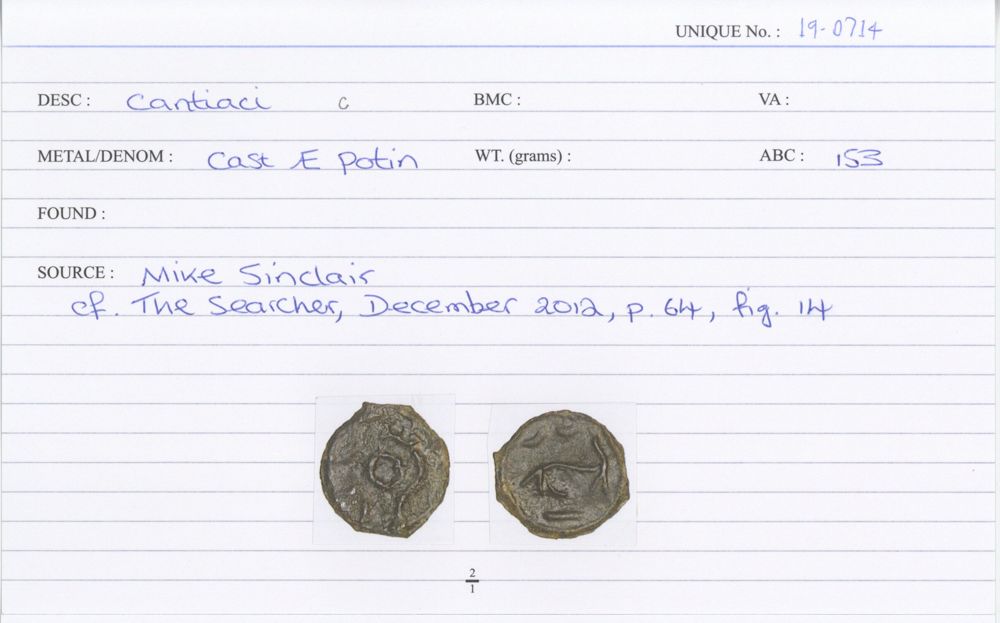 UNIQUE No. : 19-0714
DESC : Cantiaci C BMC : VA :
METAL/DENOM : Cast Æ Potin WT. (grams) : ABC : 153
FOUND :
SOURCE : Mike Sinclair
cf. The Searcher, December 2012, p. 64, fig. 14
2
1